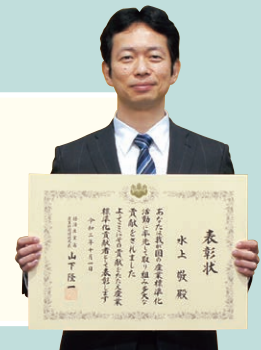 表彰状
水上 敬 殿
あなたは我が国の産業標準化
活動に率先して取り組み多大な
貢献をされました
よってここにその貢献をたたえ産業
標準化貢献者として表彰します
令和三年十月一日
山下隆一